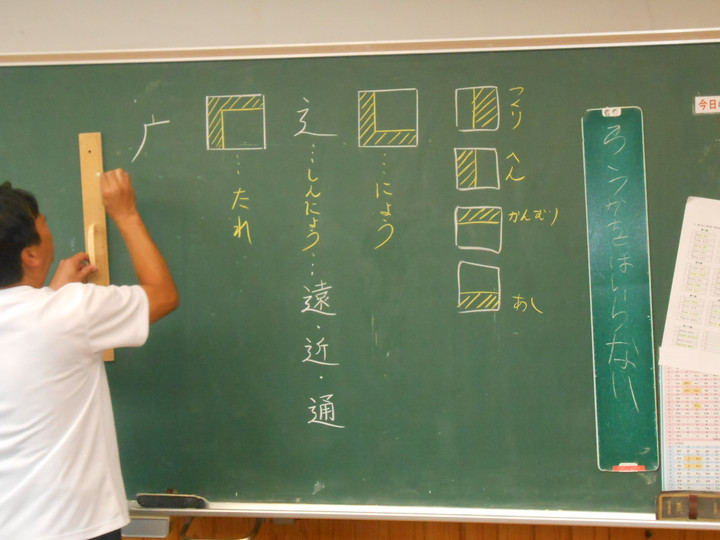 今日
ろうかをはしらない
つくり
へん
かんむり
あし
…にょう
辶…しんにょう…遠・近・通
…たれ
广